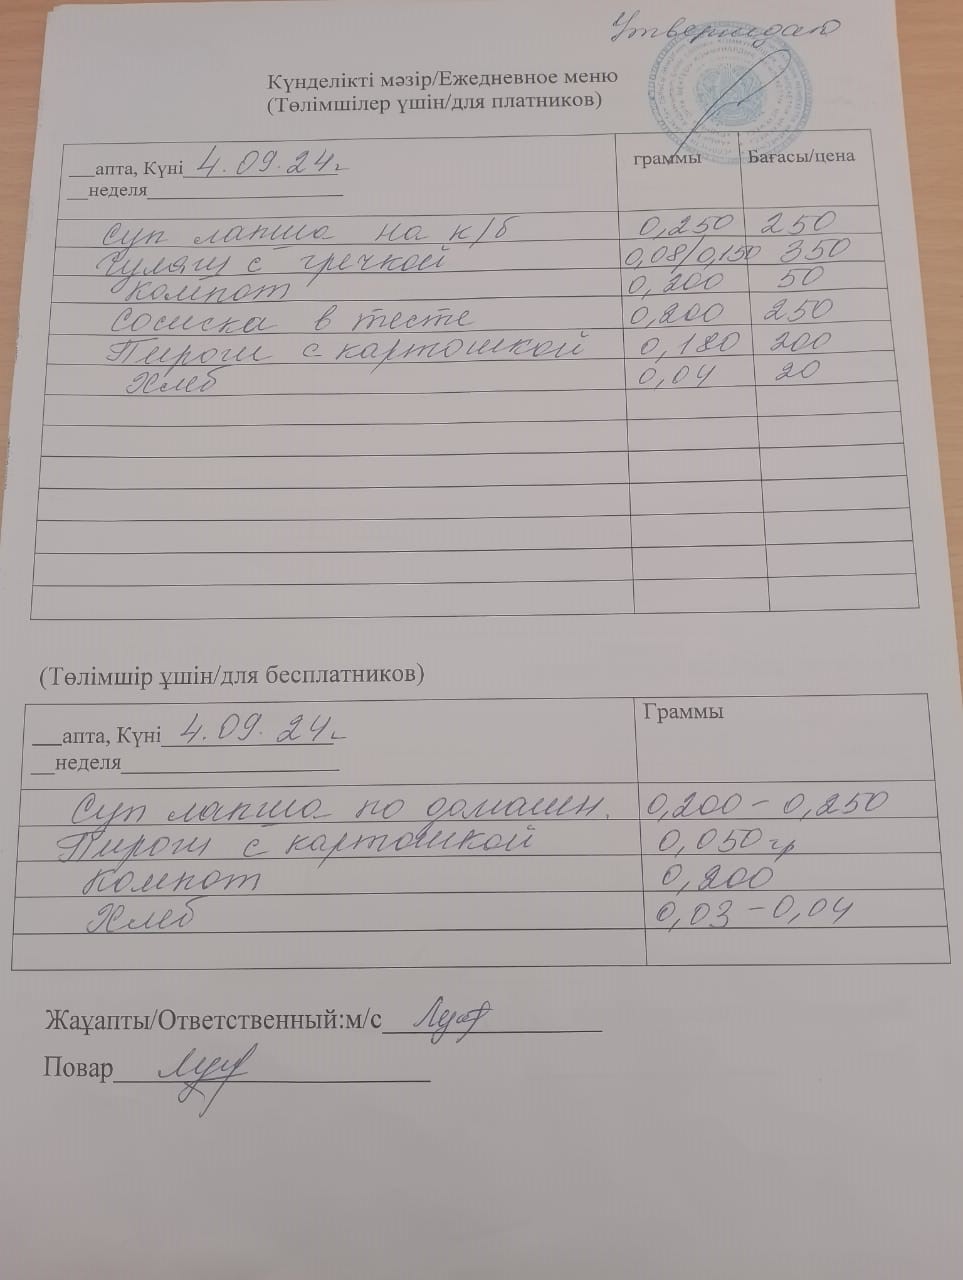 Утверждаю
Күнделікті мәзір/Ежедневное меню
(Төлімшілер үшін/для платников)
___апта, Күні 4.09.24г
__неделя
граммы Бағасы/цена
Суп лапша на к/б 0,250 250
Гуляш с гречкой 0,08/0,150 350
Компот 0,200 50
Сосиска в тесте 0,200 250
Пироги с картошкой 0,180 200
Хлеб 0,04 20
(Төлімшір ұшін/для бесплатников)
___апта, Күні 4.09.24г
__неделя
Граммы
Суп лапша по домашн. 0,200-0,250
Пироги с картошкой 0,050гр
Компот 0,200
Хлеб 0,03-0,04
Жаұапты/Ответственный:м/с
Повар